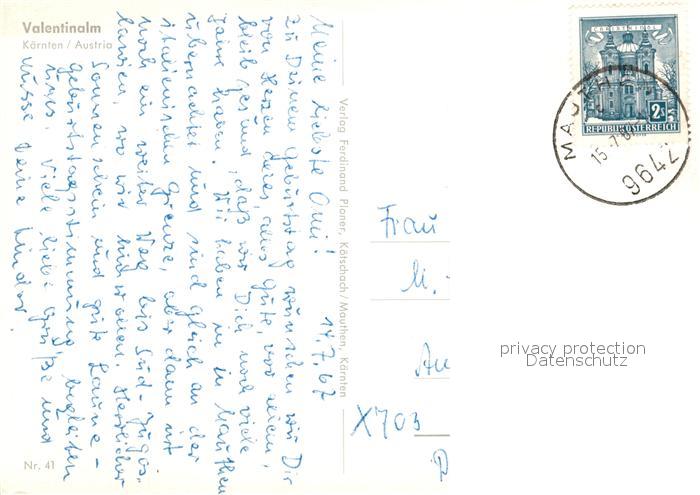 Valentinalm
Kärnten / Austria
Meine liebste Omi!
14.7.67
Zu Deinem Geburtstag wünschen wir Dir
von Herzen alles Gute, vor allem,
bleib gesund, daß wir Dich noch viele
Jahre haben. Wir haben in Mauthen
übernachtet und sind gleich an der
italienischen Grenze, aber dann ist
noch ein weiter Weg bis Süd-Jugos-
lawien, wo wir hinwollen. Herrlicher
Sonnenschein und gute Laune -
Geburtstagsstimmung begleiten
uns. Viele liebe Grüße und
Küsse Deine Kinder.
Nr. 41
Verlag Ferdinand Ploner, Kötschach / Mauthen, Kärnten
CHRISTKINDL
2 S
REPUBLIK ÖSTERREICH
MAUTHEN
15.-7.67
9642
Frau
M.
An
X703
D
privacy protection
Datenschutz